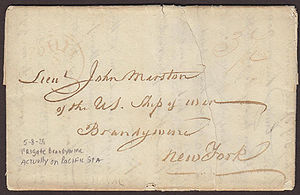 Lieut. John Marston
of the U.S. Ship of war
Brandywine
New York
5-8-26
Frigate Brandywine
actually on Pacific Sta